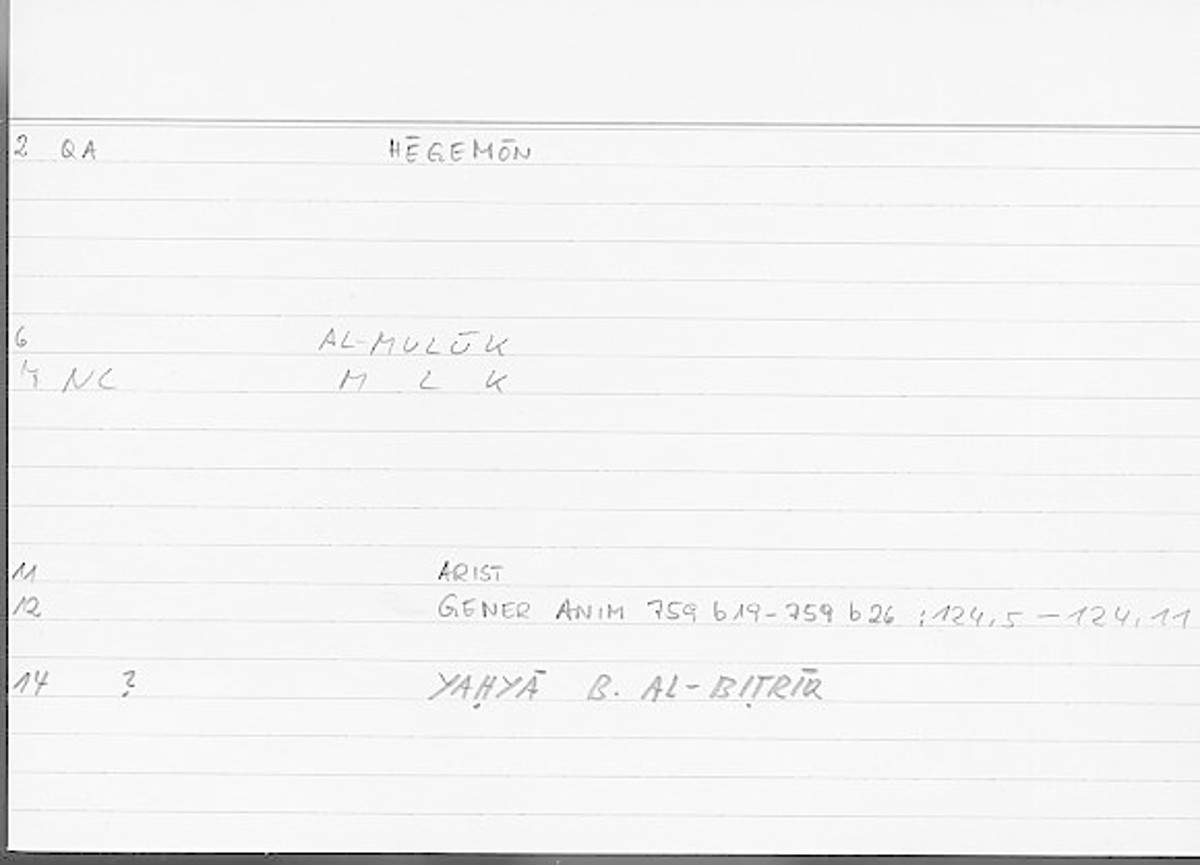 2 QA HĒGEMŌN
6 AL-MULŪK
7 NC M L K
11 ARIST
12 GENER ANIM 759 b 19-759 b 26 ; 124,5 - 124,11
14 ? YAḤYĀ B. AL-BIṬRĪQ